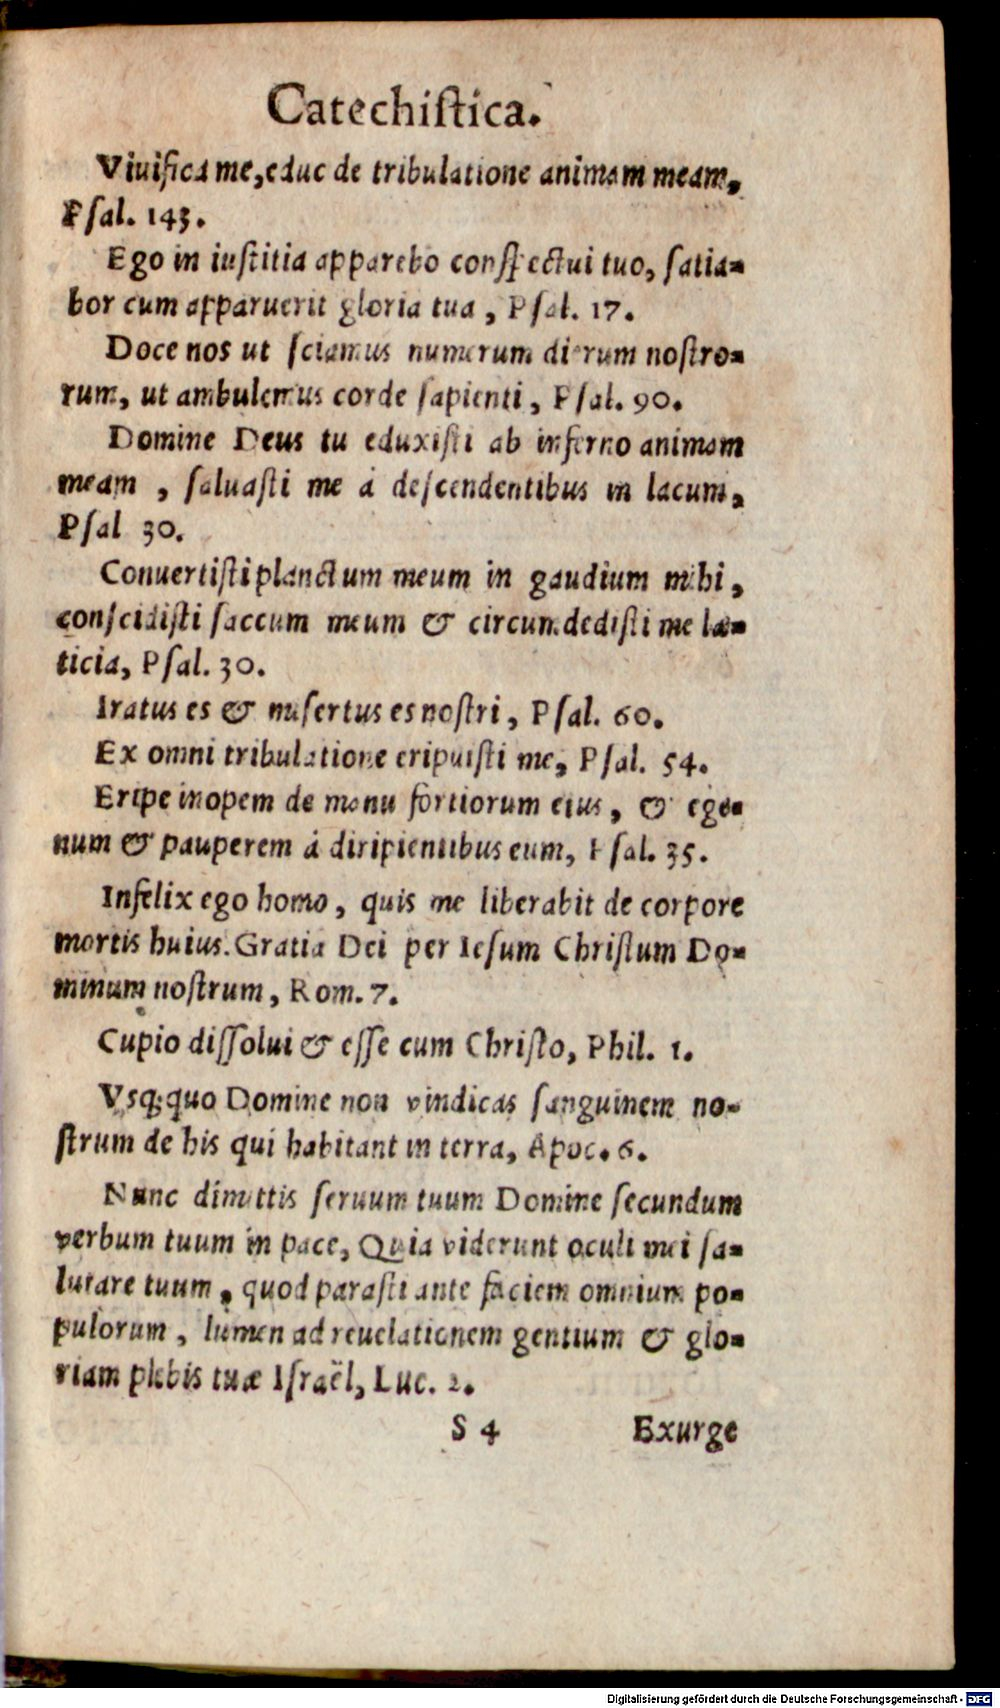 Catechistica.
Viuifica me, educ de tribulatione animam meam,
Psal. 143.
Ego in iustitia apparebo conspectui tuo, satia-
bor cum apparuerit gloria tua, Psal. 17.
Doce nos ut sciamus numerum dierum nostro-
rum, ut ambulemus corde sapienti, Psal. 90.
Domine Deus tu eduxisti ab inferno animam
meam, saluasti me á descendentibus in lacum,
Psal 30.
Conuertisti planctum meum in gaudium mihi,
conscidisti saccum meum & circumdedisti me læ-
ticia, Psal. 30.
Iratus es & misertus es nostri, Psal. 60.
Ex omni tribulatione eripuisti me, Psal. 54.
Eripe inopem de manu fortiorum eius, & ege-
num & pauperem á diripientibus eum, Psal. 35.
Infelix ego homo, quis me liberabit de corpore
mortis huius. Gratia Dei per Iesum Christum Do-
minum nostrum, Rom. 7.
Cupio dissolui & esse cum Christo, Phil. 1.
Vsq; quo Domine non vindicas sanguinem no-
strum de his qui habitant in terra, Apoc. 6.
Nunc dimittis seruum tuum Domine secundum
verbum tuum in pace, Quia viderunt oculi mei sa-
lutare tuum, quod parasti ante faciem omnium po-
pulorum, lumen ad reuelationem gentium & glo-
riam plebis tuæ Israël, Luc. 2.
S 4 Exurge
Digitalisierung gefördert durch die Deutsche Forschungsgemeinschaft - DFG